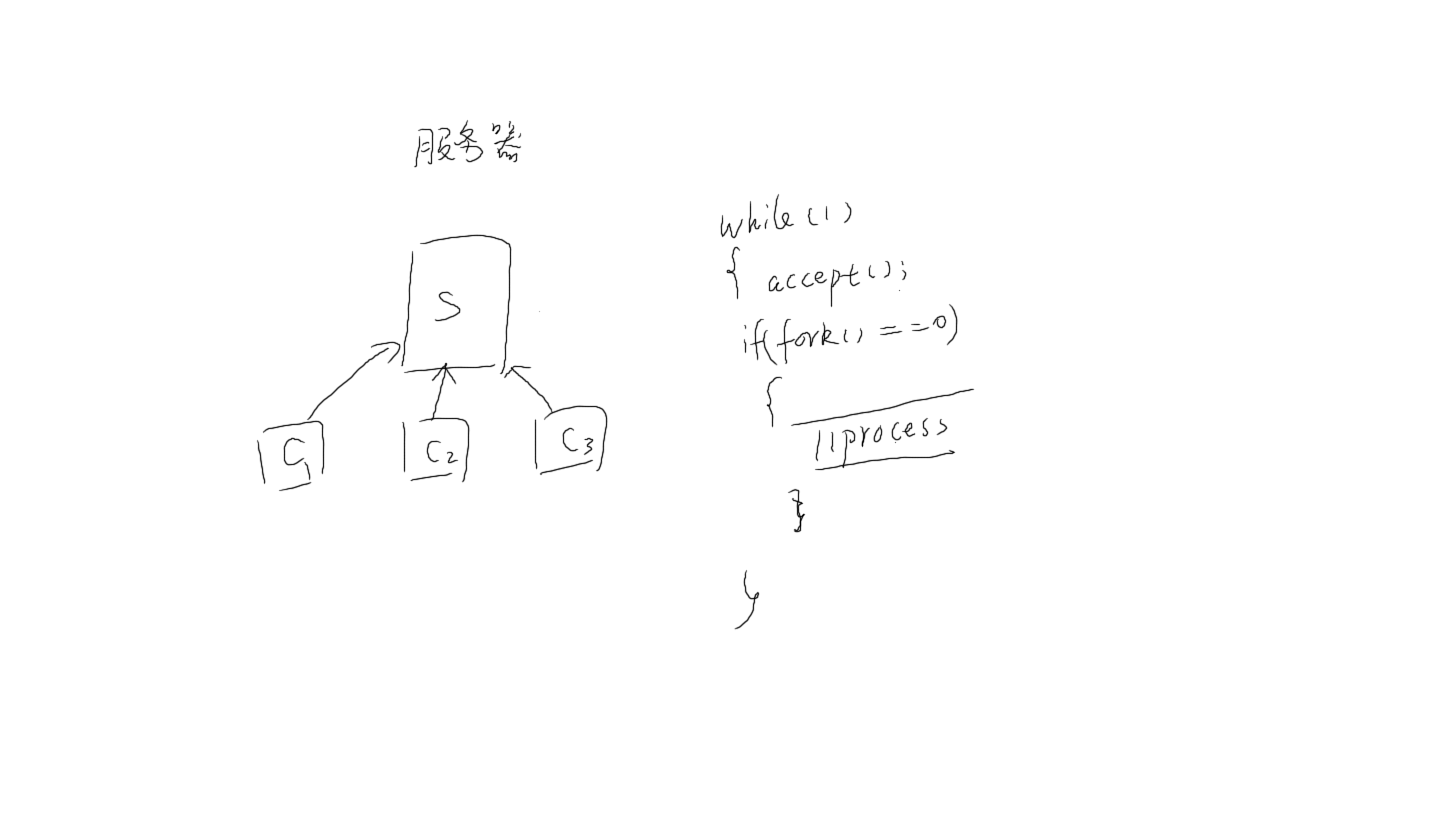 服务器
S
C1
C2
C3
while(1)
{ accept();
if(fork() == 0)
{
//process
}
}